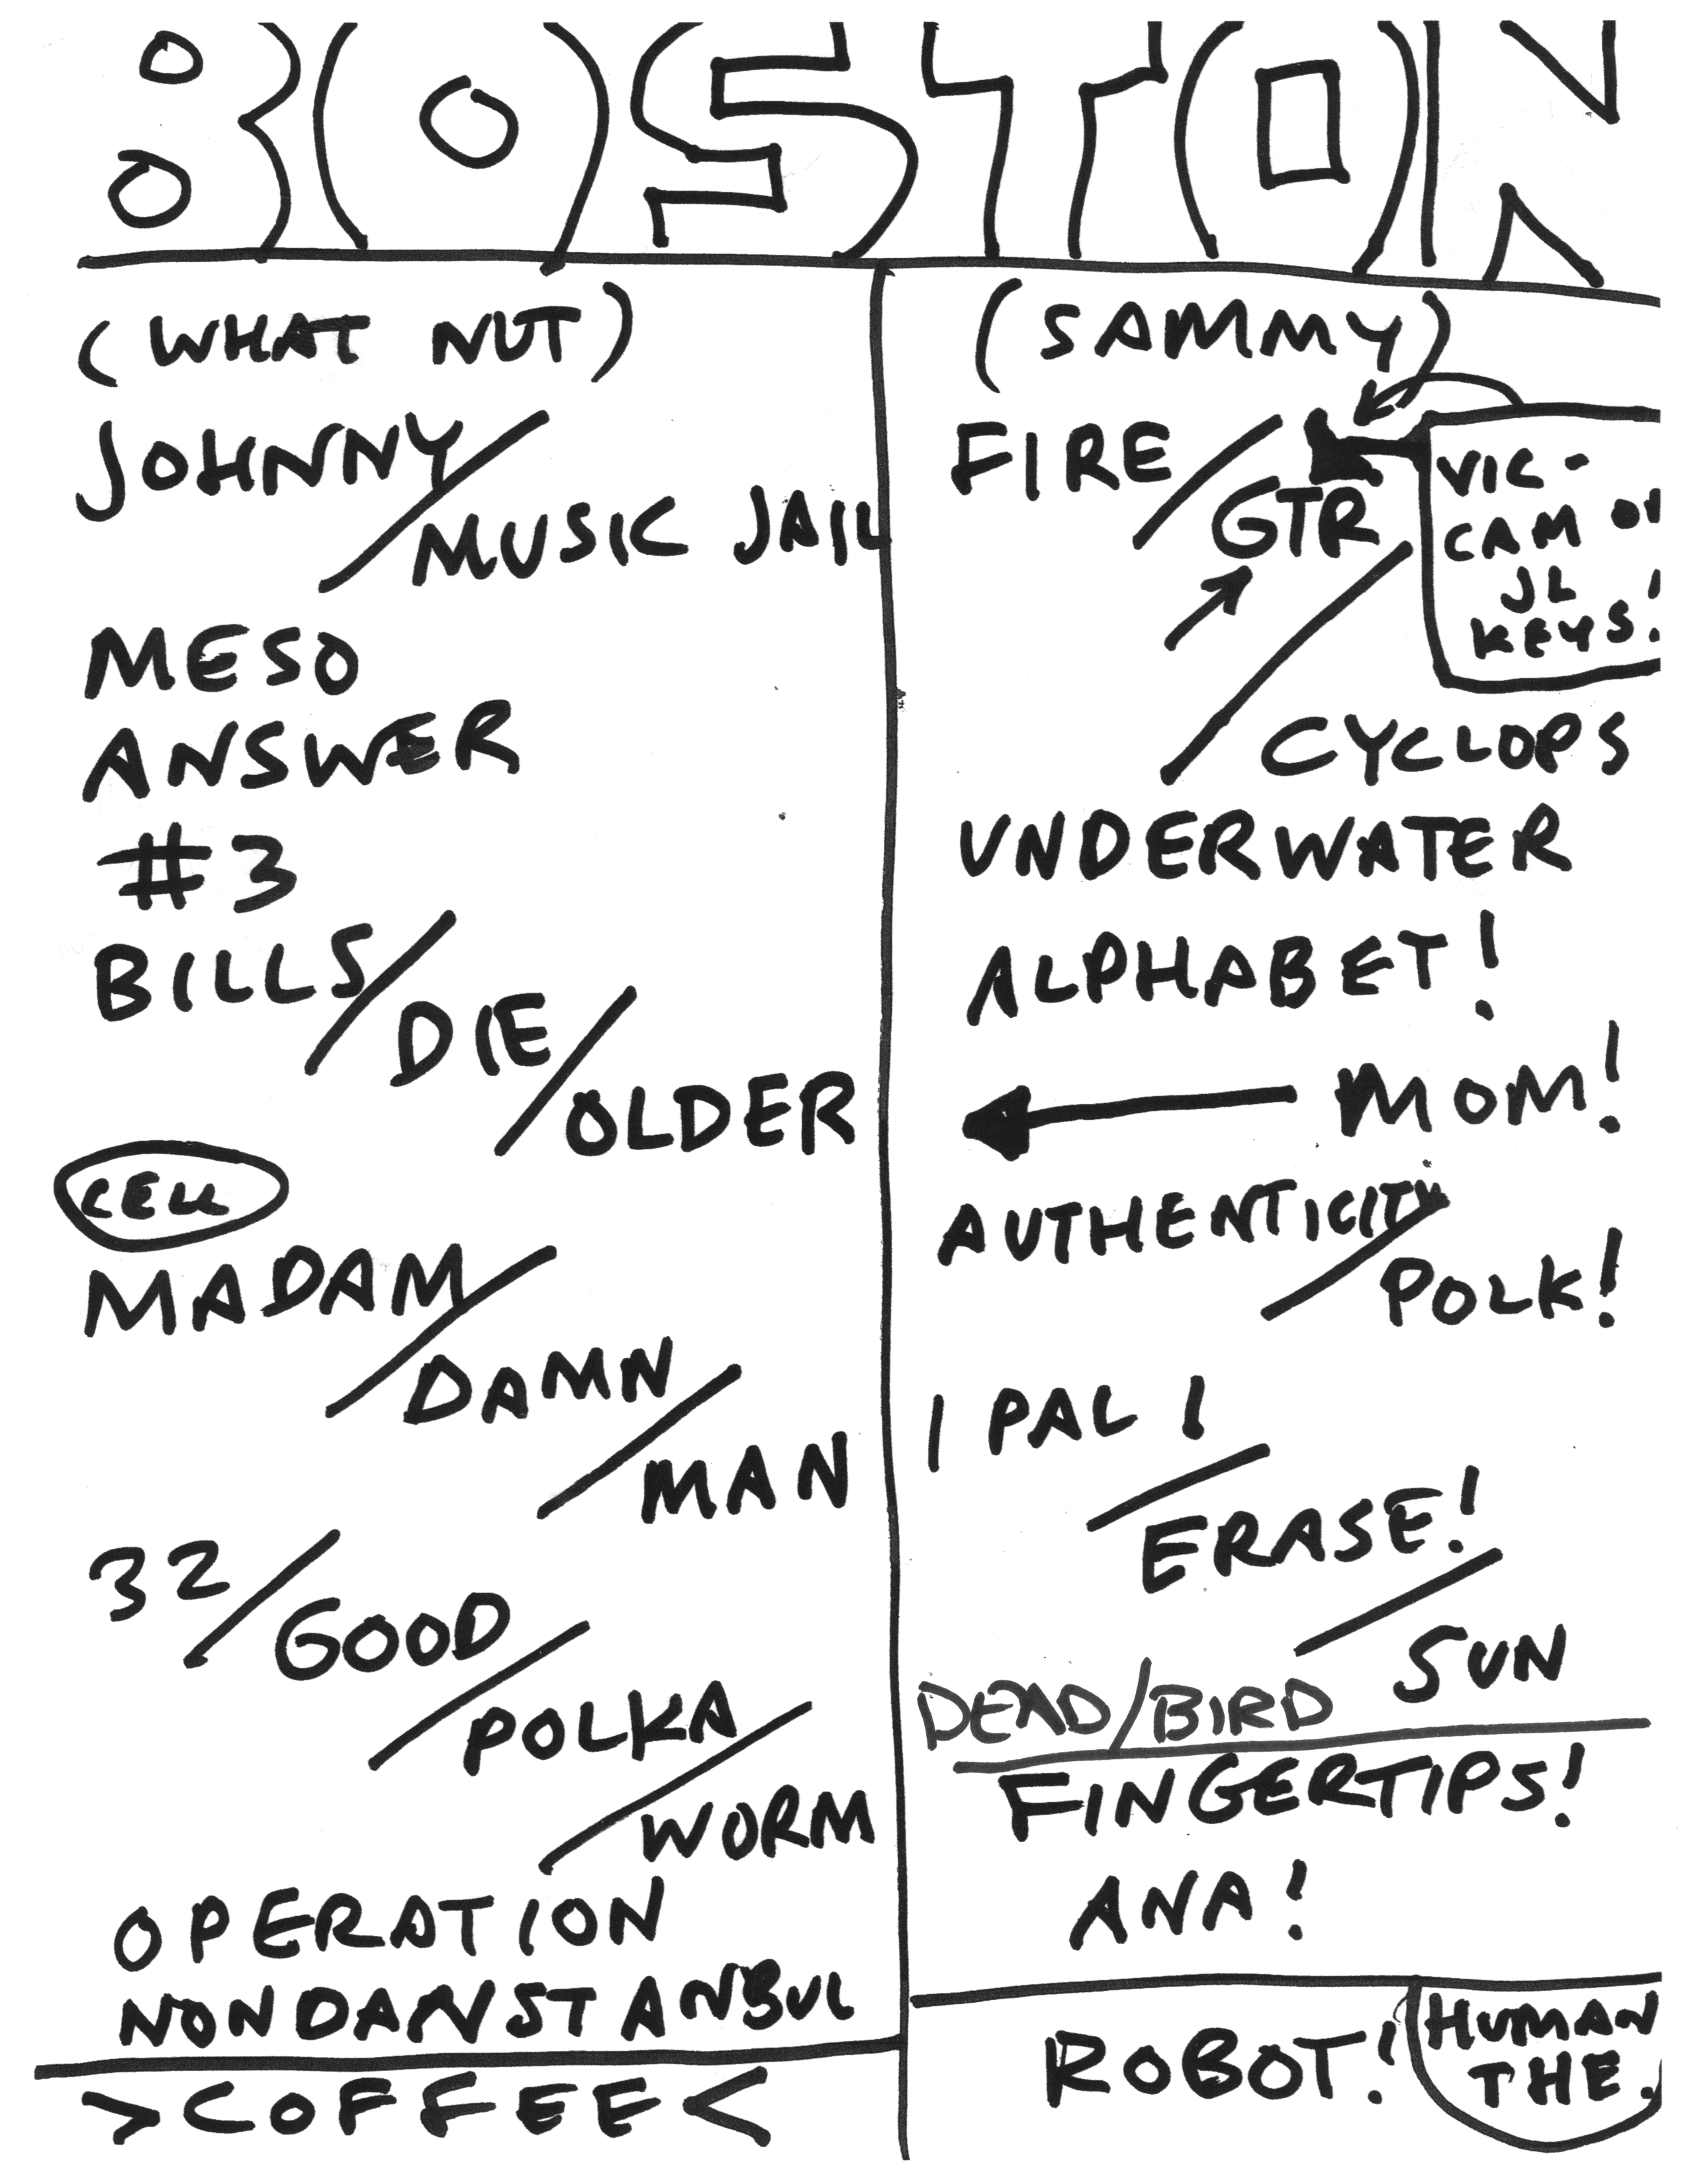 BOSTON
(WHAT NUT)
JOHNNY/
MUSIC JAIL
MESO
ANSWER
#3
BILLS/
DIE/
OLDER
CELL
MADAM/
DAMN/
MAN
32/
GOOD/
POLKA/
WORM
OPERATION
NONDANSTANBUL
>COFFEE<
(SAMMY)
FIRE/
GTR/
VIC-
CAM
JL
KEYS!
CYCLOPS
UNDERWATER
ALPHABET!
MOM!
AUTHENTICITY/
POLK!
1 PAL!/
ERASE!/
SUN
DEAD/BIRD
FINGERTIPS!
ANA!
ROBOT!
HUMAN
THE.